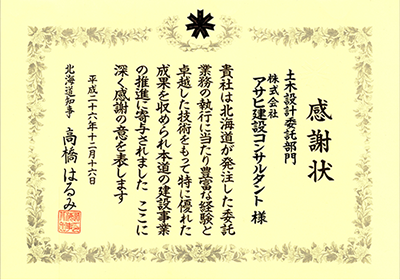 感謝状
土木設計委託部門
株式会社
アサヒ建設コンサルタント 様
貴社は北海道が発注した委託
業務の執行に当たり豊富な経験と
卓越した技術をもって特に優れた
成果を収められ本道の建設事業
の推進に寄与されました ここに
深く感謝の意を表します
平成二十六年十二月十六日
北海道知事 高橋はるみ